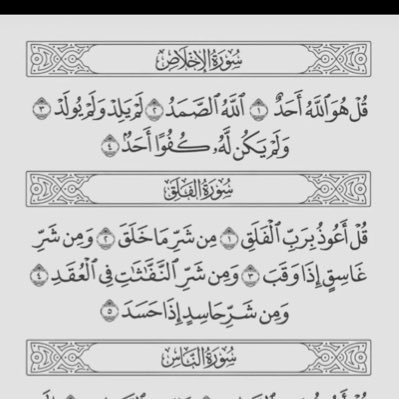 سُورَةُ الإِخْلَاصِ
قُلْ هُوَ ٱللَّهُ أَحَدٌ ١ ٱللَّهُ ٱلصَّمَدُ ٢ لَمْ يَلِدْ وَلَمْ يُولَدْ ٣
وَلَمْ يَكُن لَّهُۥ كُفُوًا أَحَدٌۢ ٤
سُورَةُ الفَلَقِ
قُلْ أَعُوذُ بِرَبِّ ٱلْفَلَقِ ١ مِن شَرِّ مَا خَلَقَ ٢ وَمِن شَرِّ
غَاسِقٍ إِذَا وَقَبَ ٣ وَمِن شَرِّ ٱلنَّفَّٰثَٰتِ فِى ٱلْعُقَدِ ٤
وَمِن شَرِّ حَاسِدٍ إِذَا حَسَدَ ٥
سُورَةُ النَّاسِ